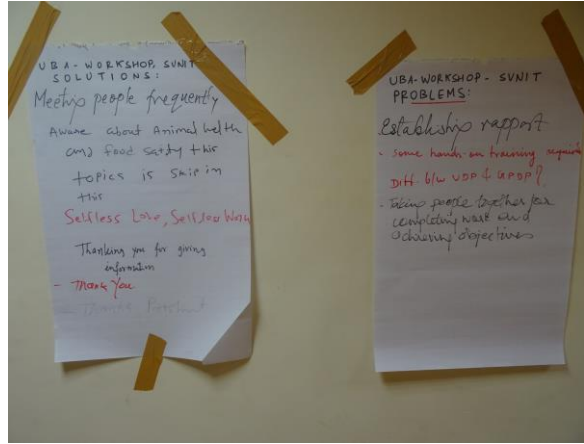 UBA-WORKSHOP, SVNIT
SOLUTIONS:
Meeting people frequently
Aware about Animal helth
and food safty this
topics is skip in
this
Selfless Love, Selfless Work
Thanking you for giving
information
- Thank You
UBA-WORKSHOP - SVNIT
PROBLEMS:
Establiship rapport
- some hands-on training required
Diff. b/w VDP & GPDP?
- Taking people together for
completing work and
achieving objectives